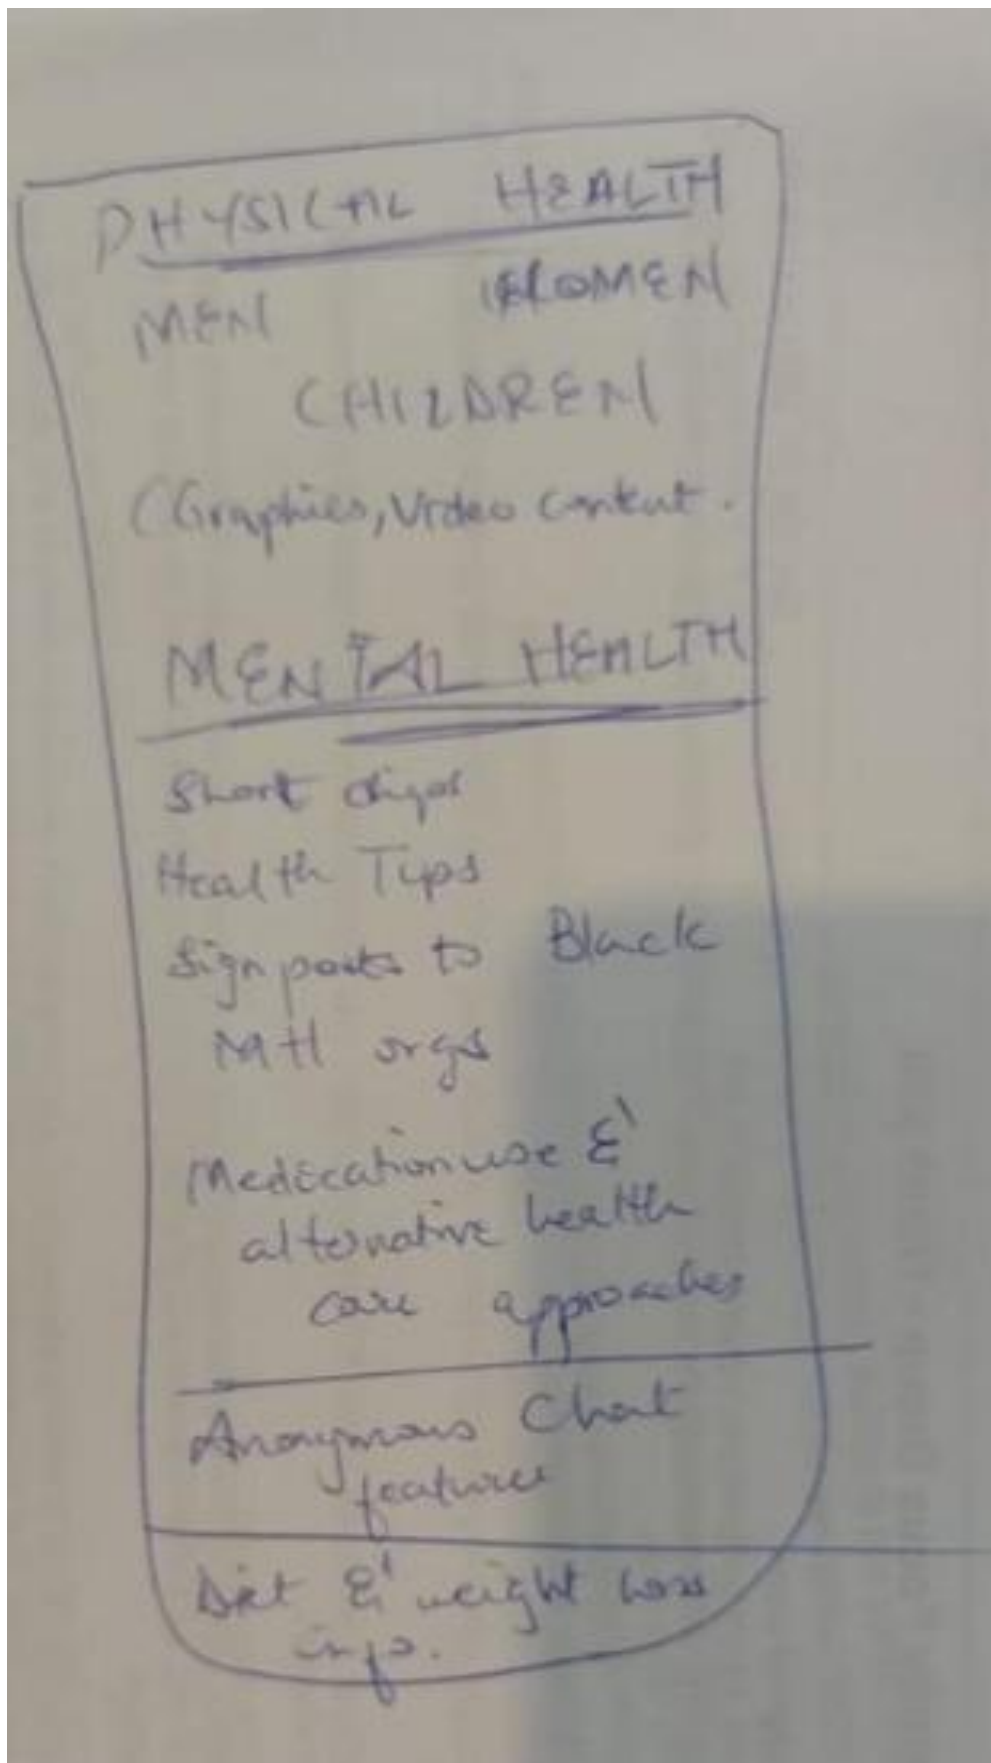 PHYSICAL HEALTH
MEN WOMEN
CHILDREN
(Graphics, Video content.
MENTAL HEALTH
Short
Health Tips
Sign posts to Black
MH orgs
Medication use &
alternative health
care approaches
Anonymous Chat
feature
Diet & weight loss
info.